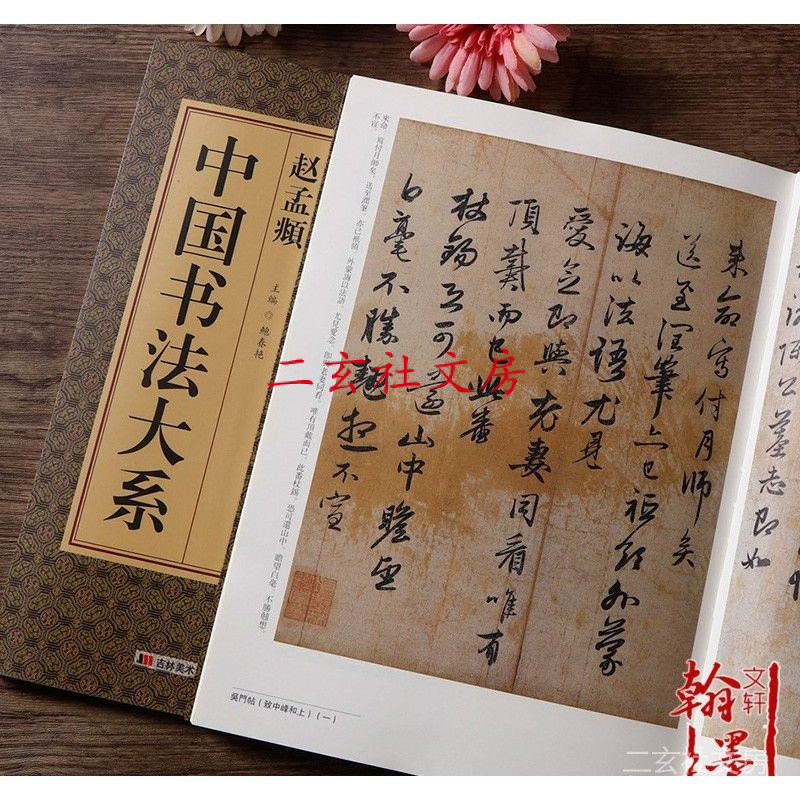 赵孟頫
中国书法大系
主编◎鲍春艳
吉林美术
來命，寫付月師矣，送至潤筆，亦已祗領，外蒙誨以法語，尤見愛念，即與老妻同看，唯有頂戴而已，此番杖錫，恐可還山中，瞻望白毫，不勝翹想
不宣。
來命寫付月師矣
送至潤筆亦已祗領外蒙
誨以法語尤見
愛念即與老妻同看唯有
頂戴而已此番
杖錫恐可還山中瞻望
白毫不勝翹想不宣
墓志即如
吳門帖（致中峰和上）（一）
二玄社文房
翰墨
文轩
二玄社文房